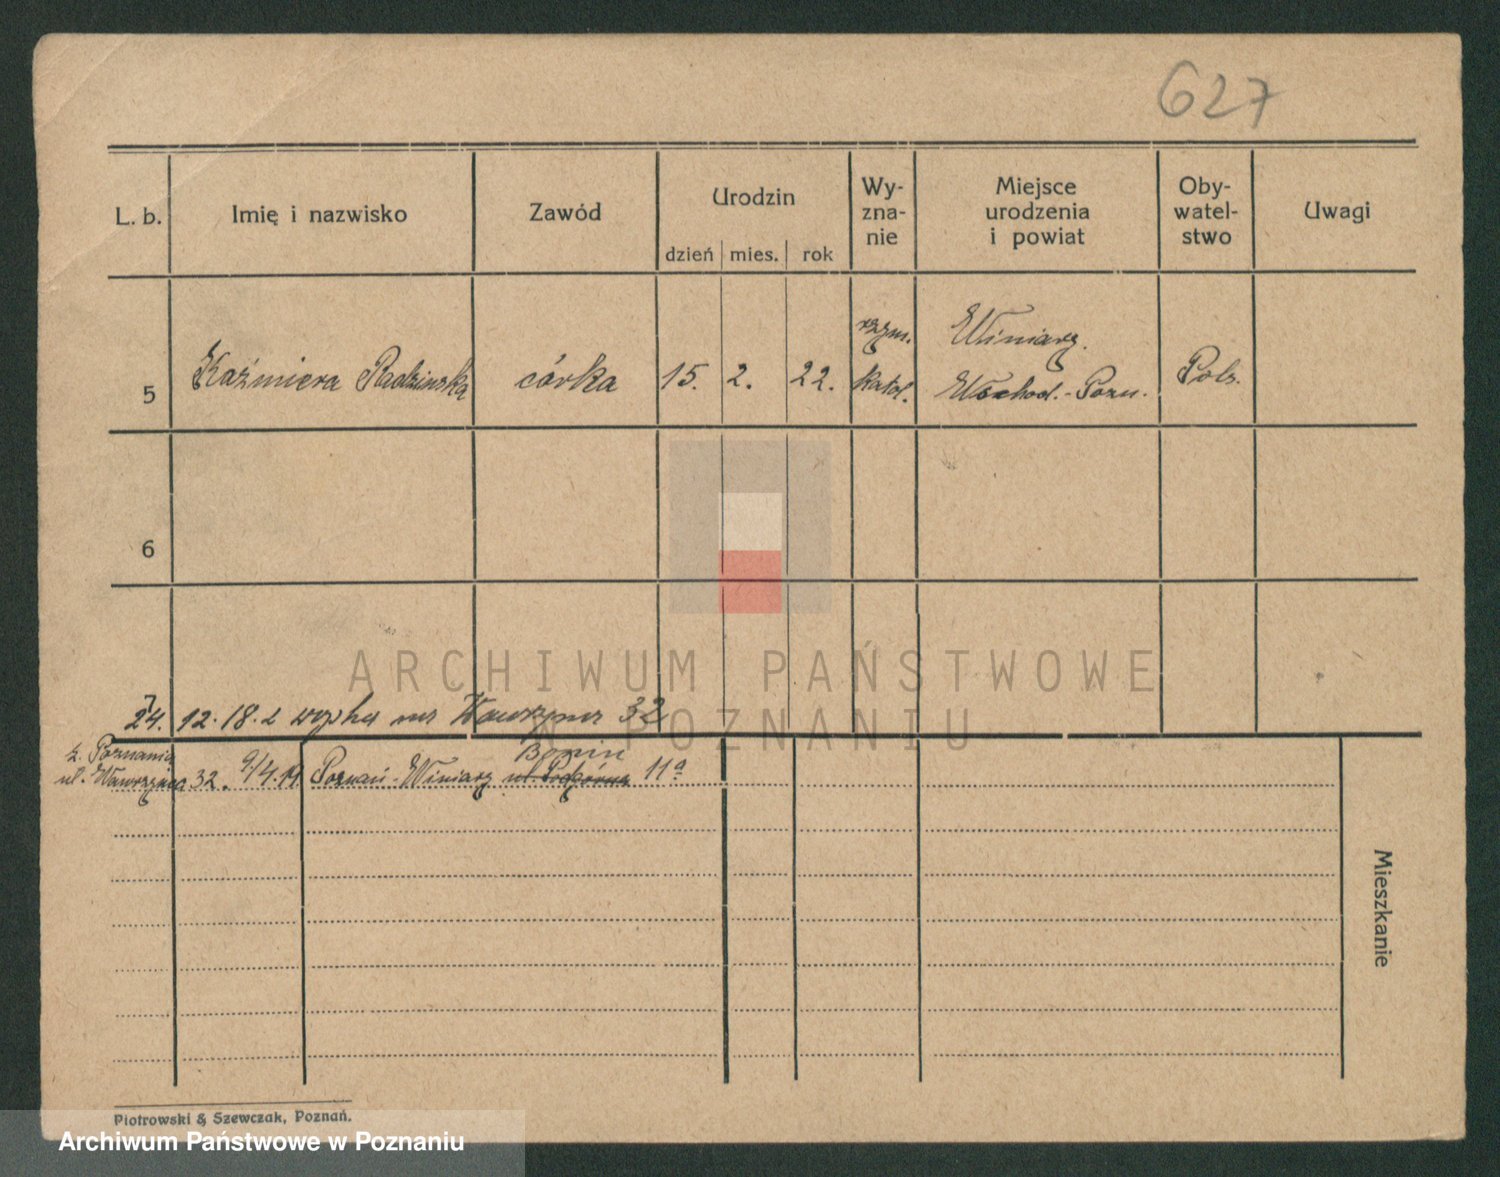 627
L. b. Imię i nazwisko Zawód Urodzin Wy-zna-nie Miejsce urodzenia i powiat Oby-watel-stwo Uwagi
dzień mies. rok
5 Kaźmiera Radzinska córka 15. 2. 22. rzym. katol. Winiary. Wschod.-Pozn. Pols.
6
7
24. 12. 18. z na Wawrzynca 32
z. Poznania
ul. Wawrzynca 32. 9/4.19. Poznań-Winiary ul. Podgórna Bonin 11a
Mieszkanie
Piotrowski & Szewczak, Poznań.
ARCHIWUM PAŃSTWOWE
W POZNANIU
Archiwum Państwowe w Poznaniu